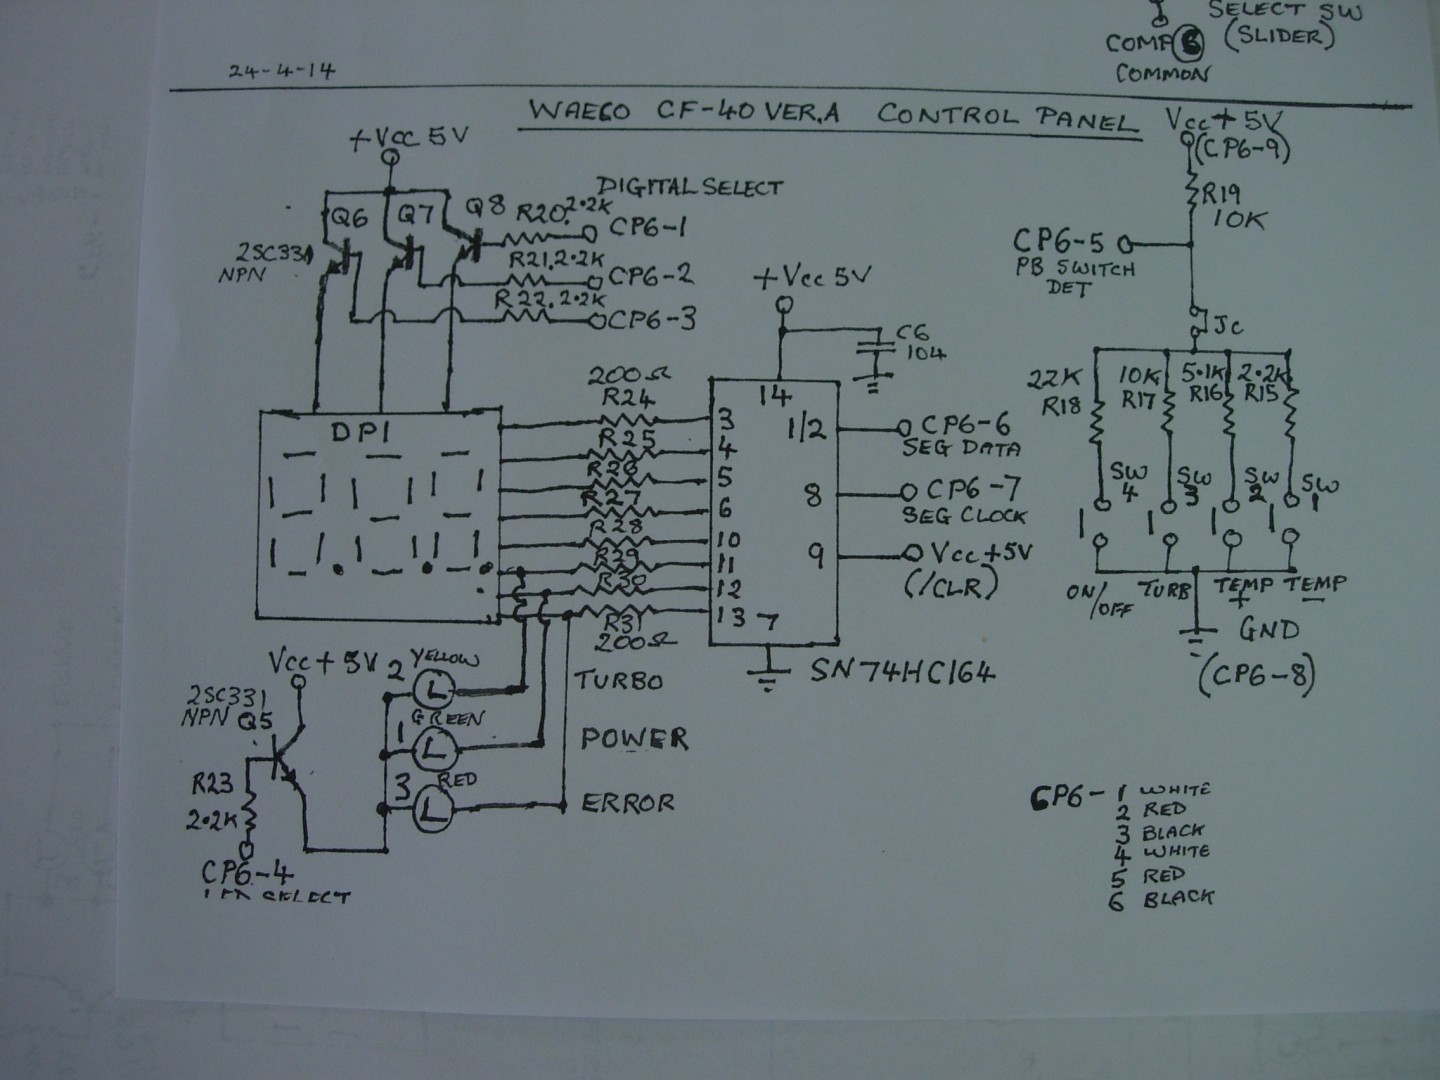 SELECT SW
COMP 5 (SLIDER)
COMMON
24-4-14
WAECO CF-40 VER.A CONTROL PANEL
+Vcc 5V
Vcc + 5V
(CP6-9)
R19
10K
DIGITAL SELECT
Q6 Q7 Q8 R20. 2.2K
CP6-1
2SC331
NPN
R21, 2.2K
CP6-2
R22. 2.2K
CP6-3
CP6-5
PB SWITCH
DET
+Vcc 5V
C6
104
JC
200Ω
R24
22K 10K 5.1K 2.2K
R18 R17 R16 R15
DP1
R25
R26
R27
R28
R29
R30
R31
200Ω
14
3 1/2
4
5
6 8
10
11 9
12
13 7
CP6-6
SEG DATA
CP6-7
SEG CLOCK
Vcc +5V
(/CLR)
SW 4 SW 3 SW 2 SW 1
ON/OFF TURB TEMP + TEMP -
GND
(CP6-8)
SN74HC164
Vcc + 5V
2 YELLOW
L
TURBO
2SC331
NPN Q5
1 GREEN
L
POWER
R23
2.2K
3 RED
L
ERROR
CP6-4
LED SELECT
CP6- 1 WHITE
2 RED
3 BLACK
4 WHITE
5 RED
6 BLACK